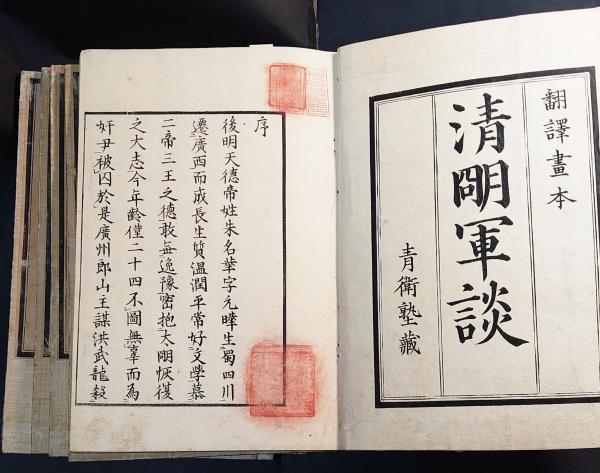 翻譯畫本
清明軍談
青衛塾藏
序
後明天德帝姓朱名華字元曄生蜀四川
遷廣西而成長生質溫潤平常好文學慕
二帝三王之德敢無逸豫密抱大明恢復
之大志今年齡僅二十四不圖無辜而為
奸尹被囚於是廣州郎山主謀洪武龍殺